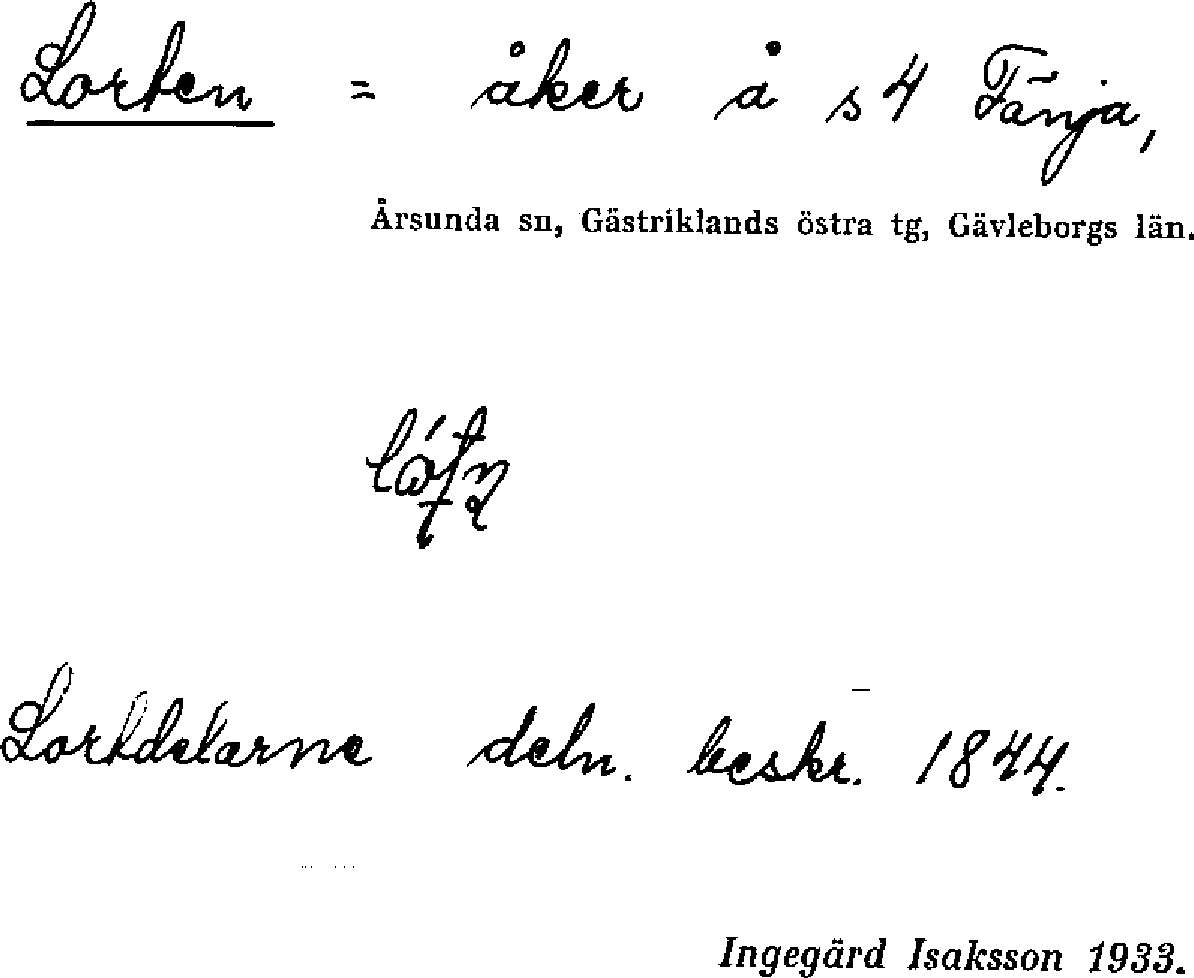 Lorten = åker å s 4 Fänja,
Årsunda sn, Gästriklands östra tg, Gävleborgs län.
Lortdelarne deln. beskr. 1844.
Ingegärd Isaksson 1933.